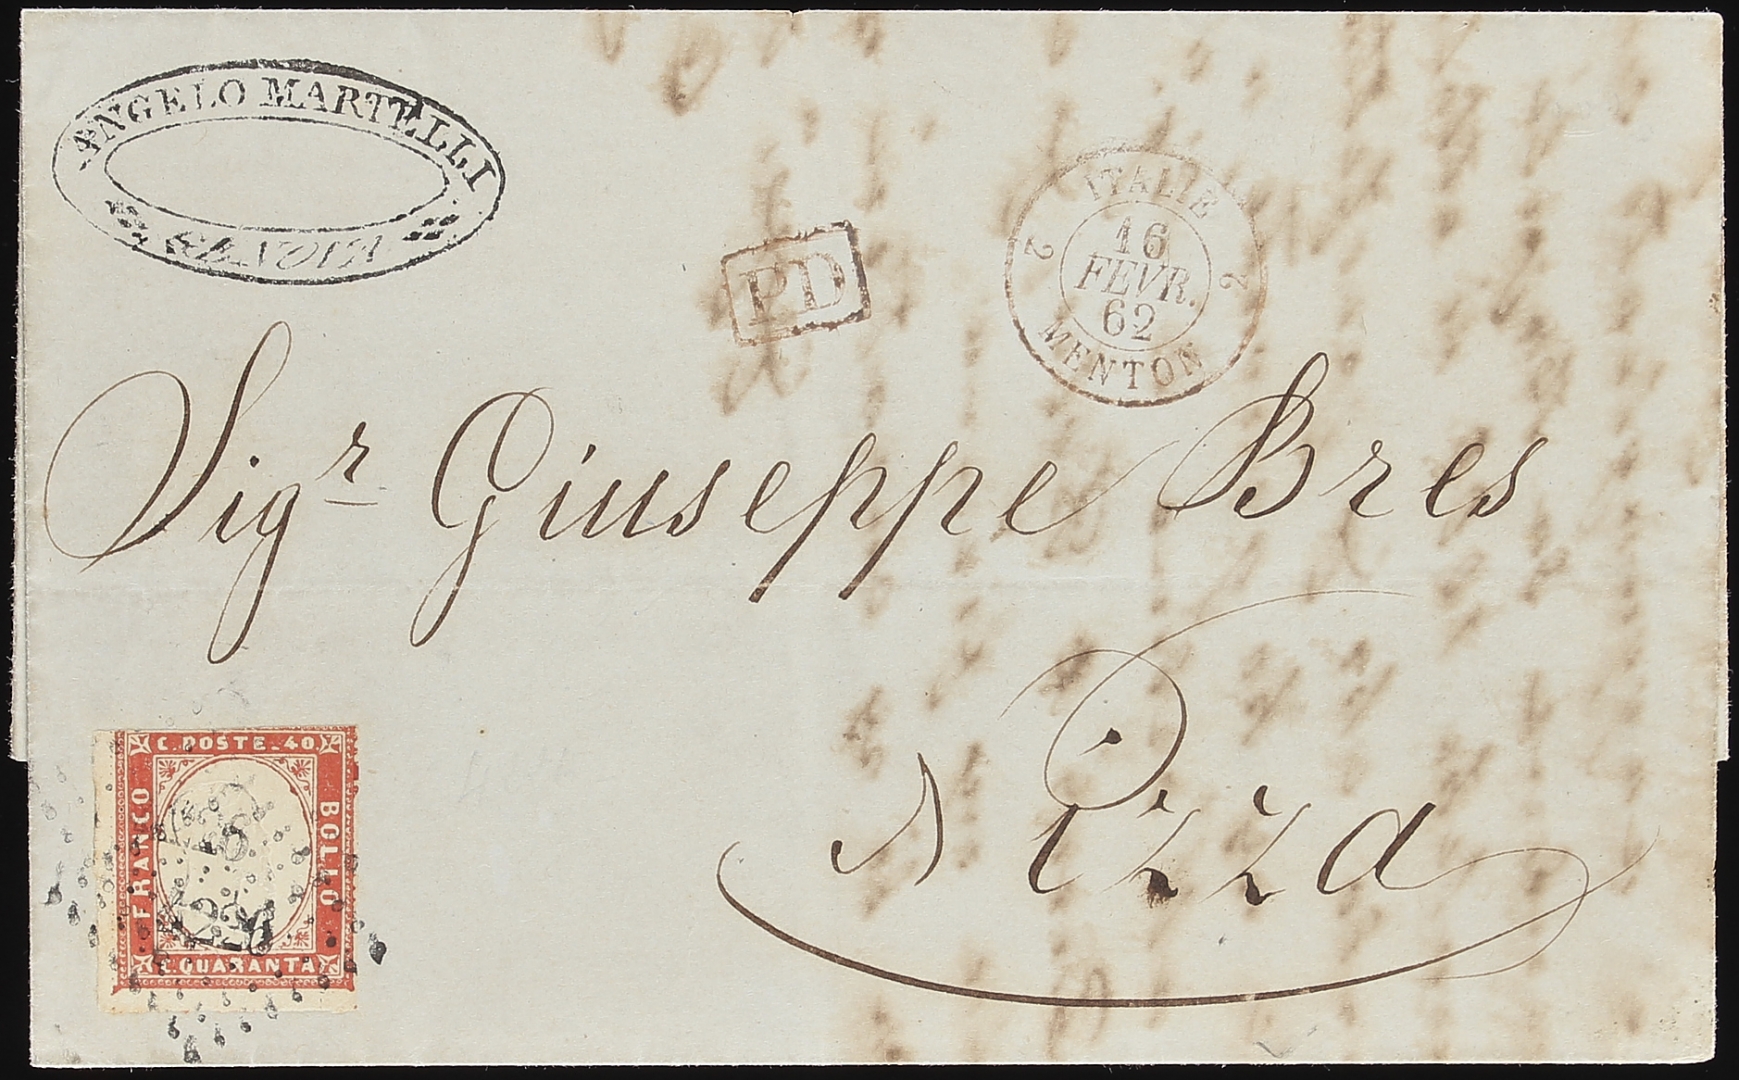 ANGELO MARTELLI
GENOVA
PD
ITALIE
16
FEVR.
62
2 2
MENTON
Sigr Giuseppe Bres
Nizza
C. POSTE. 40
FRANCO
BOLLO
C. QUARANTA